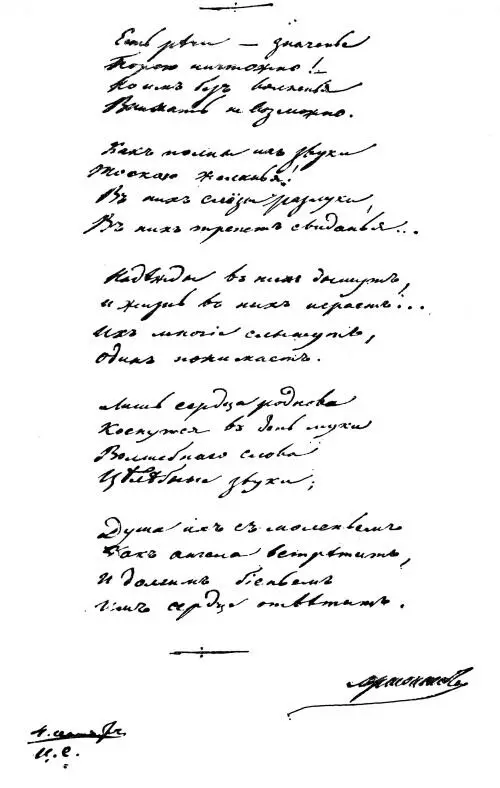 Есть рѣчи — значенье
Порою ничтожно!
Но имъ безъ волненья
Внимать невозможно.
Какъ полны ихъ звуки
Тоскою желанья!
Въ нихъ слёзы разлуки,
Въ нихъ трепетъ свиданья...
Надежды въ нихъ дышутъ,
И жизнь въ нихъ играетъ...
Ихъ многіе слышутъ,
Одинъ понимаетъ.
Лишь сердца роднова
Коснутся въ день муки
Волшебнаго слова
Цѣлебные звуки;
Душа ихъ съ моленьемъ
Какъ ангела встрѣтитъ,
И долгимъ біеньемъ
Имъ сердце отвѣтитъ.
Лермонтовъ